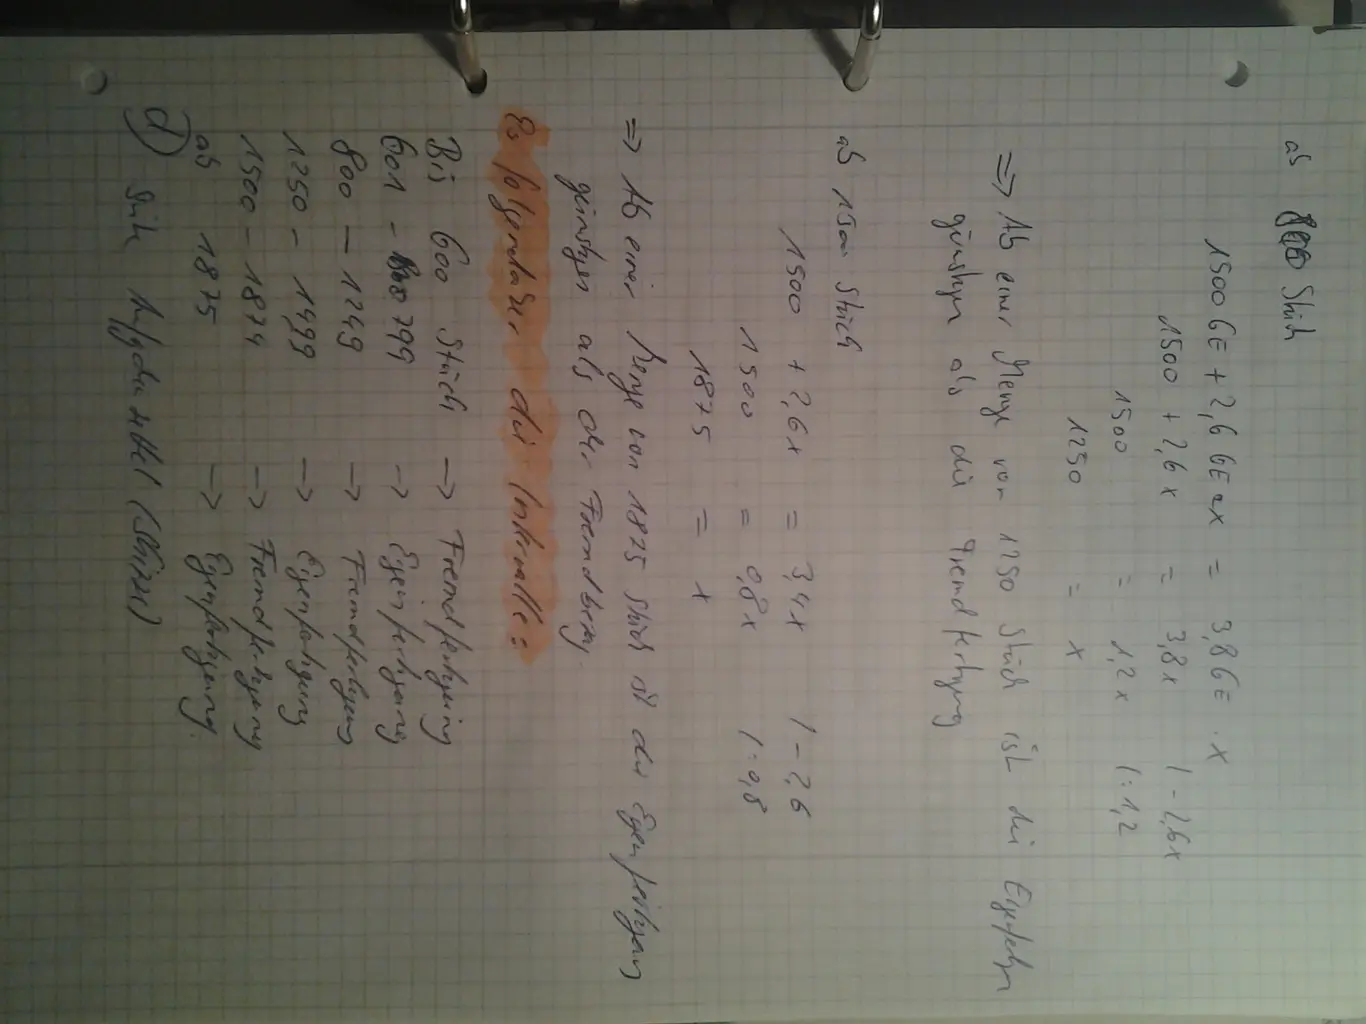 ab 800 Stück
1500 GE + 2,6 GE x = 3,8 GE · x
1500 + 2,6 x = 3,8 x | - 2,6x
1500 = 1,2 x | : 1,2
1250 = x
=> Ab einer Menge von 1250 Stück ist die
günstiger als die Fremdfertigung
ab 1500 Stück
1500 + 2,6 x = 3,4 x | - 2,6
1500 = 0,8 x | : 0,8
1875 = x
=> Ab einer Menge von 1875 Stück ist die Eigenfertigung
günstiger als der Fremdbezug.
die Intervalle:
Bis 600 Stück -> Fremdfertigung
601 - 799 -> Eigenfertigung
800 - 1249 -> Fremdfertigung
1250 - 1499 -> Eigenfertigung
1500 - 1874 -> Fremdfertigung
ab 1875 -> Eigenfertigung.
d) Siehe (Skizze)